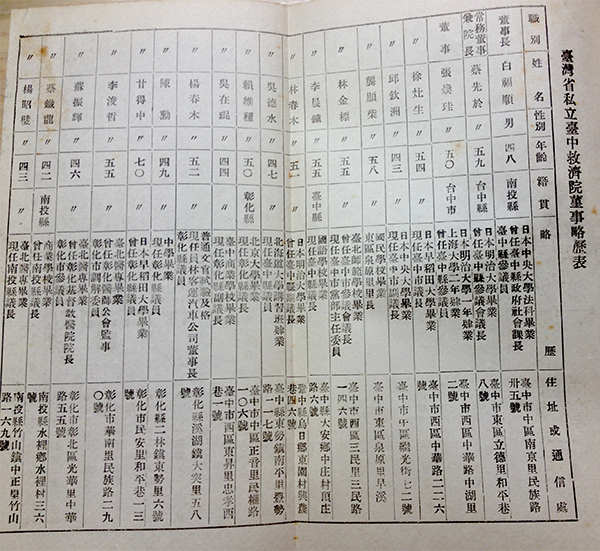 臺灣省私立臺中救濟院董事略歷表
職別 姓名 性別 年齡 籍貫 略歷 住址或通信處
董事長 白福順 男 四八 南投縣 日本中央大學法科畢業
曾任臺中縣政府社會課長
臺中市中區南京里民族路
卅五號
常務董事
兼院長 蔡先於 〃 五九 台中縣 臺中縣參議員
日本明治大學畢業
曾任臺中縣參議會議長
臺中市東區立德里和平巷
八號
董事 張煥珪 〃 五〇 台中市 日本明治大學一年肄業
上海大學二年肄業
曾任臺中縣參議員
臺中市西區中華路中湖里
二號
〃 徐灶生 〃 五四 〃 日本早稻田大學畢業
現任臺中市議長
臺中市西區中華路二二六
號
〃 邱欽洲 〃 四三 〃 日本中央大學畢業
現任臺中市議員
臺中市中區繼光街七二號
〃 龔顯柴 〃 五八 〃 國民學校畢業
東區泉原里里長
臺中市東區泉原里旱溪
〃 林金標 〃 五五 〃 臺北師範學校畢業
曾任臺中市參議會議長
現任臺中市黨部主任委員
臺中市西區三民里三民路
一四六號
〃 李晨鐘 〃 五五 臺中縣 國語學校畢業
現任臺中縣議員
臺中縣大安鄉中庄村頂庄
路六號
〃 林春木 〃 五一 〃 日本明治大學畢業
曾任臺中縣副議長
臺中縣烏日鄉東園村興農
巷四六號
〃 吳德水 〃 四七 〃 北海道帝大講習班肄業
現任臺中縣議員
臺中縣東勢鎮南平里豐勢
路一號
〃 賴維種 〃 五〇 彰化縣 北京大學畢業
現任彰化縣議長
臺中市中區正音里民權路
一〇六號
〃 吳在琨 〃 四四 〃 臺中商業學校畢業
現任彰化縣副議長
臺中市西區東昇里忠孝西
巷一號
〃 楊春木 〃 五二 〃 普通文官試驗及格
現任員林客運汽車公司董事長
彰化縣議員
彰化縣溪湖鎮大突里五八
號
〃 陳勳 〃 四九 〃 中學畢業
現任彰化縣議員
彰化縣二林鎮東勢里六號
〃 甘得中 〃 七〇 〃 日本早稻田大學畢業
彰化市民安里和平巷一三
號
〃 李浚哲 〃 五五 〃 臺北醫專畢業
曾任彰化醫師公會監事
彰化市調解委員
彰化市華南里民族路二九
〇號
〃 蘇振輝 〃 四六 〃 臺北醫專畢業
曾任彰化基督教醫院院長
彰化市參議員
彰化市彰北區光華里中華
路五五號
〃 蔡鐵龍 〃 四二 南投縣 商業學校畢業
曾任南投縣議員
南投縣水裡鄉水裡村三六
號
〃 楊昭璧 〃 四三 〃 臺北醫專畢業
現任南投縣議員
南投縣竹山鎮中正里竹山
路一六九號